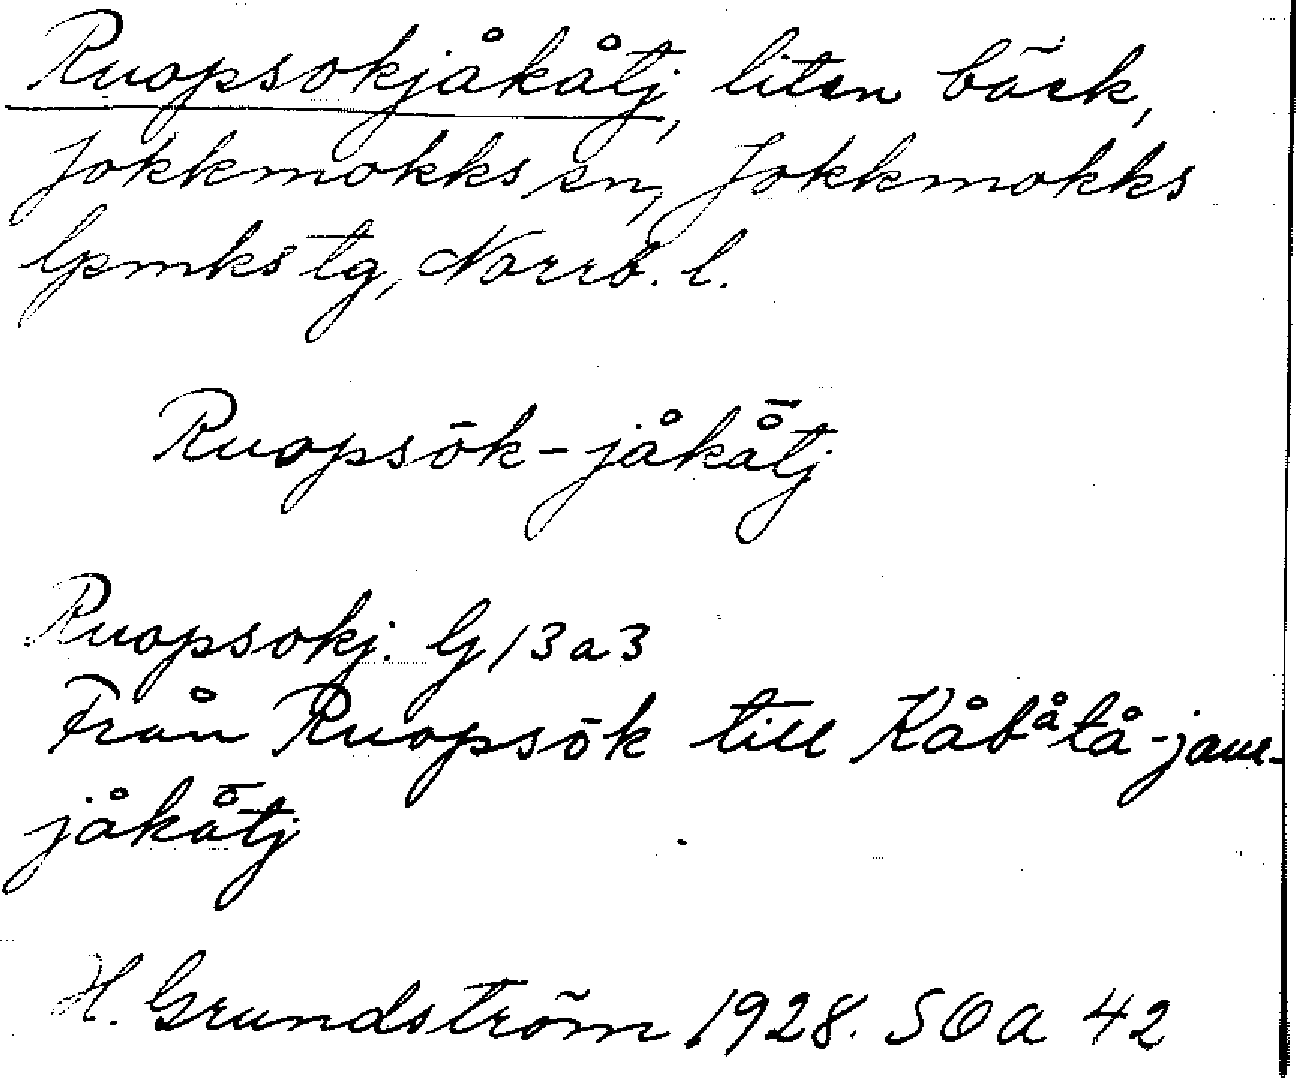 Ruopsokjåkåtj, liten bäck,
Jokkmokks sn, Jokkmokks
lpmks tg, Norrb. l.
Ruopsōk-jåkå̄tj
Ruopsokj. G 13a3
Från Ruopsōk till Kåbåtå-jaur-
jåkå̄tj
H. Grundström 1928. SOA 42